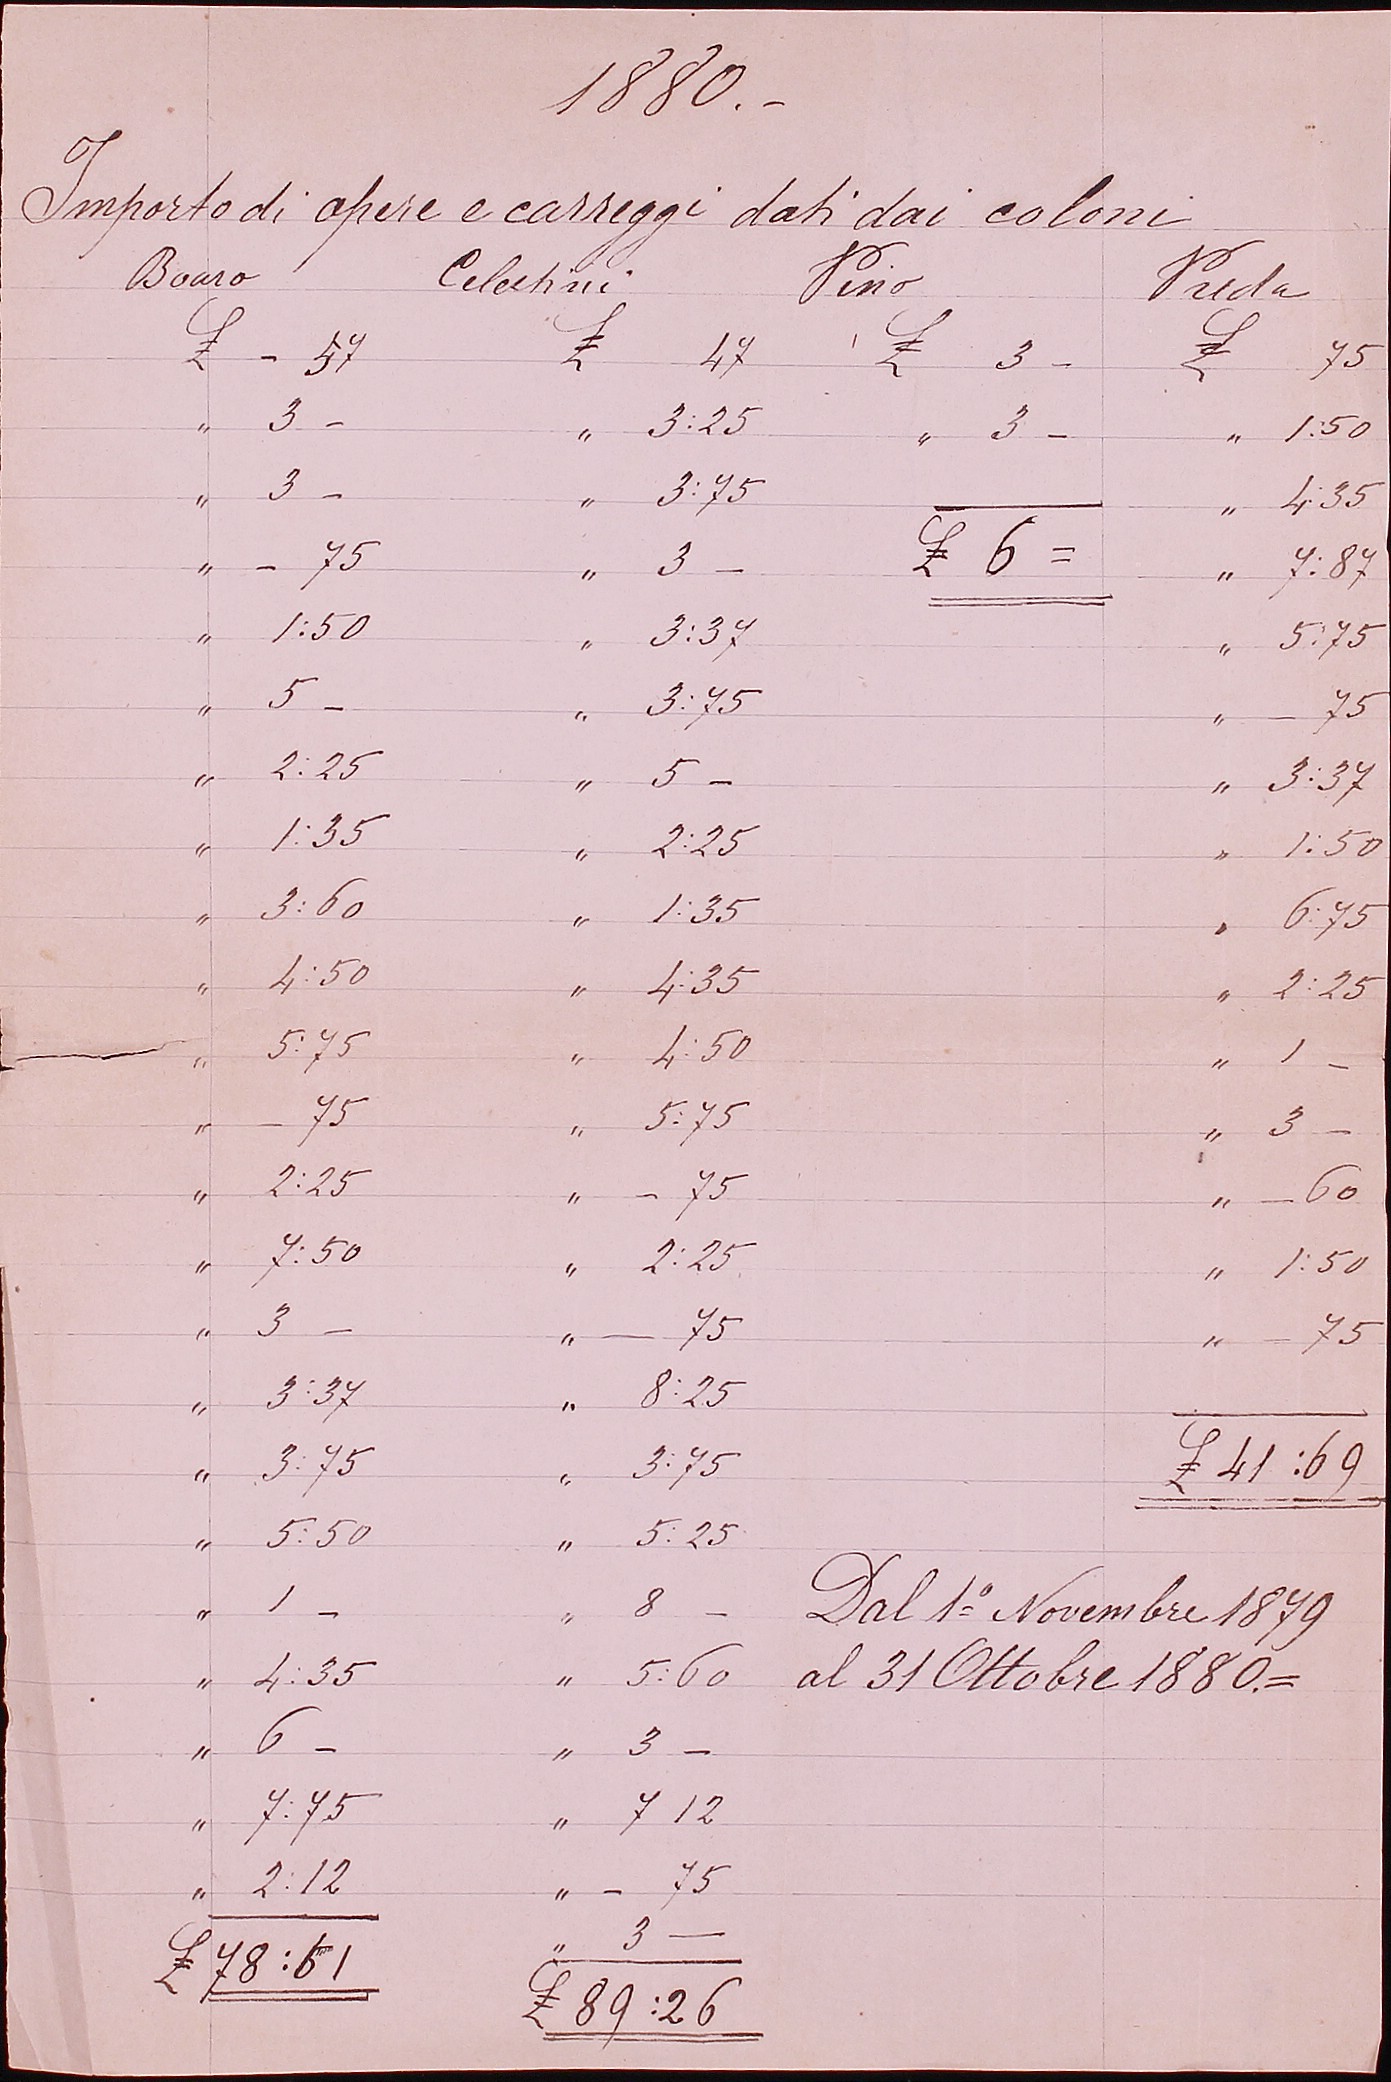 1880.-
Importo di opere e carreggi dati dai coloni
Boaro Celestini Pino Preda
£ - 57 £ 47 £ 3 - £ 75
" 3 - " 3:25 " 3 - " 1:50
" 3 - " 3:75 " 4:35
" - 75 " 3 - £ 6 = " 7:87
" 1:50 " 3:37 " 5:75
" 5 - " 3:75 " - 75
" 2:25 " 5 - " 3:37
" 1:35 " 2:25 " 1:50
" 3:60 " 1:35 " 6:75
" 4:50 " 4:35 " 2:25
" 5:75 " 4:50 " 1 -
" - 75 " 5:75 " 3 -
" 2:25 " - 75 " - 60
" 7:50 " 2:25 " 1:50
" 3 - " - 75 " - 75
" 3:37 " 8:25
" 3:75 " 3:75 £ 41:69
" 5:50 " 5:25
" 1 - " 8 - Dal 1º Novembre 1879
" 4:35 " 5:60 al 31 Ottobre 1880.=
" 6 - " 3 -
" 7:75 " 7 12
" 2:12 " - 75
" 3 -
£ 78:61
£ 89:26